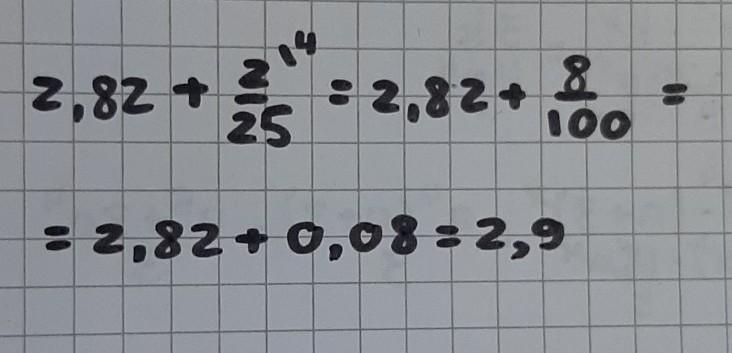 2,82 + \frac{2}{25}^{\backslash 4} = 2,82 + \frac{8}{100} =
= 2,82 + 0,08 = 2,9